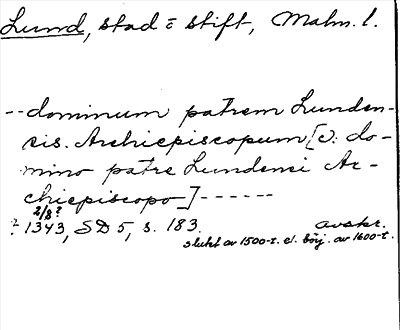 Lund, stad o stift, Malm. l.
-- dominum patrem Lunden-
sis. Archiepiscopum [ɔ: do-
mino patre Lundensi Ar-
chiepiscopo] ------
2/8?
? 1343, SD 5, s. 183. avskr.
slutet av 1500-t. el. börj. av 1600-t.